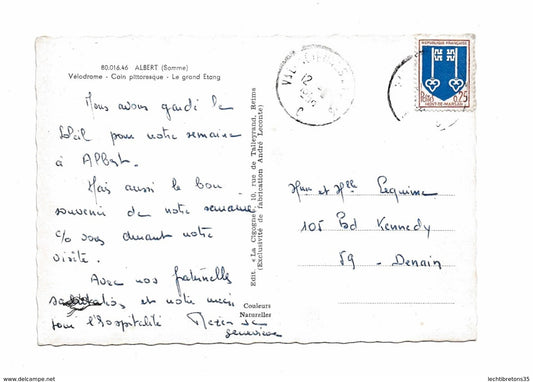 80.016.46 ALBERT (Somme)
Vélodrome - Coin pittoresque - Le grand Etang
Nous avons gardé le
Soleil pour notre semaine
à Albert.
Mais aussi le bon
souvenir de notre semaine
c/o vous durant notre
visite.
Avec nos fraternelles
et notre merci
pour l'hospitalité
Geneviève
Edit. «La Cigogne», 10, rue de Talleyrand, Reims
(Exclusivité de fabrication André Leconte)
Couleurs
Naturelles
REPUBLIQUE FRANÇAISE
POSTES 0,25
MONT-DE-MARSAN
et Lequime
105 Bd Kennedy
59 - Denain
PICCLICK
lechtibretons35